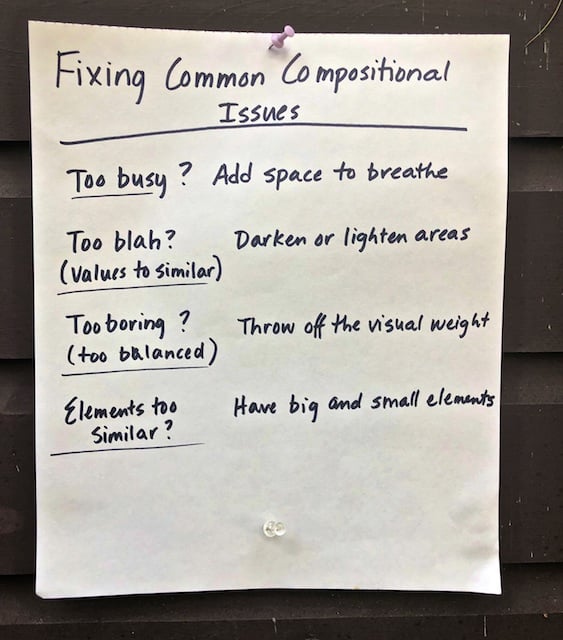 Fixing Common Compositional
Issues
Too busy? Add space to breathe
Too blah? Darken or lighten areas
(values to similar)
Too boring? Throw off the visual weight
(too balanced)
Elements too Have big and small elements
Similar?